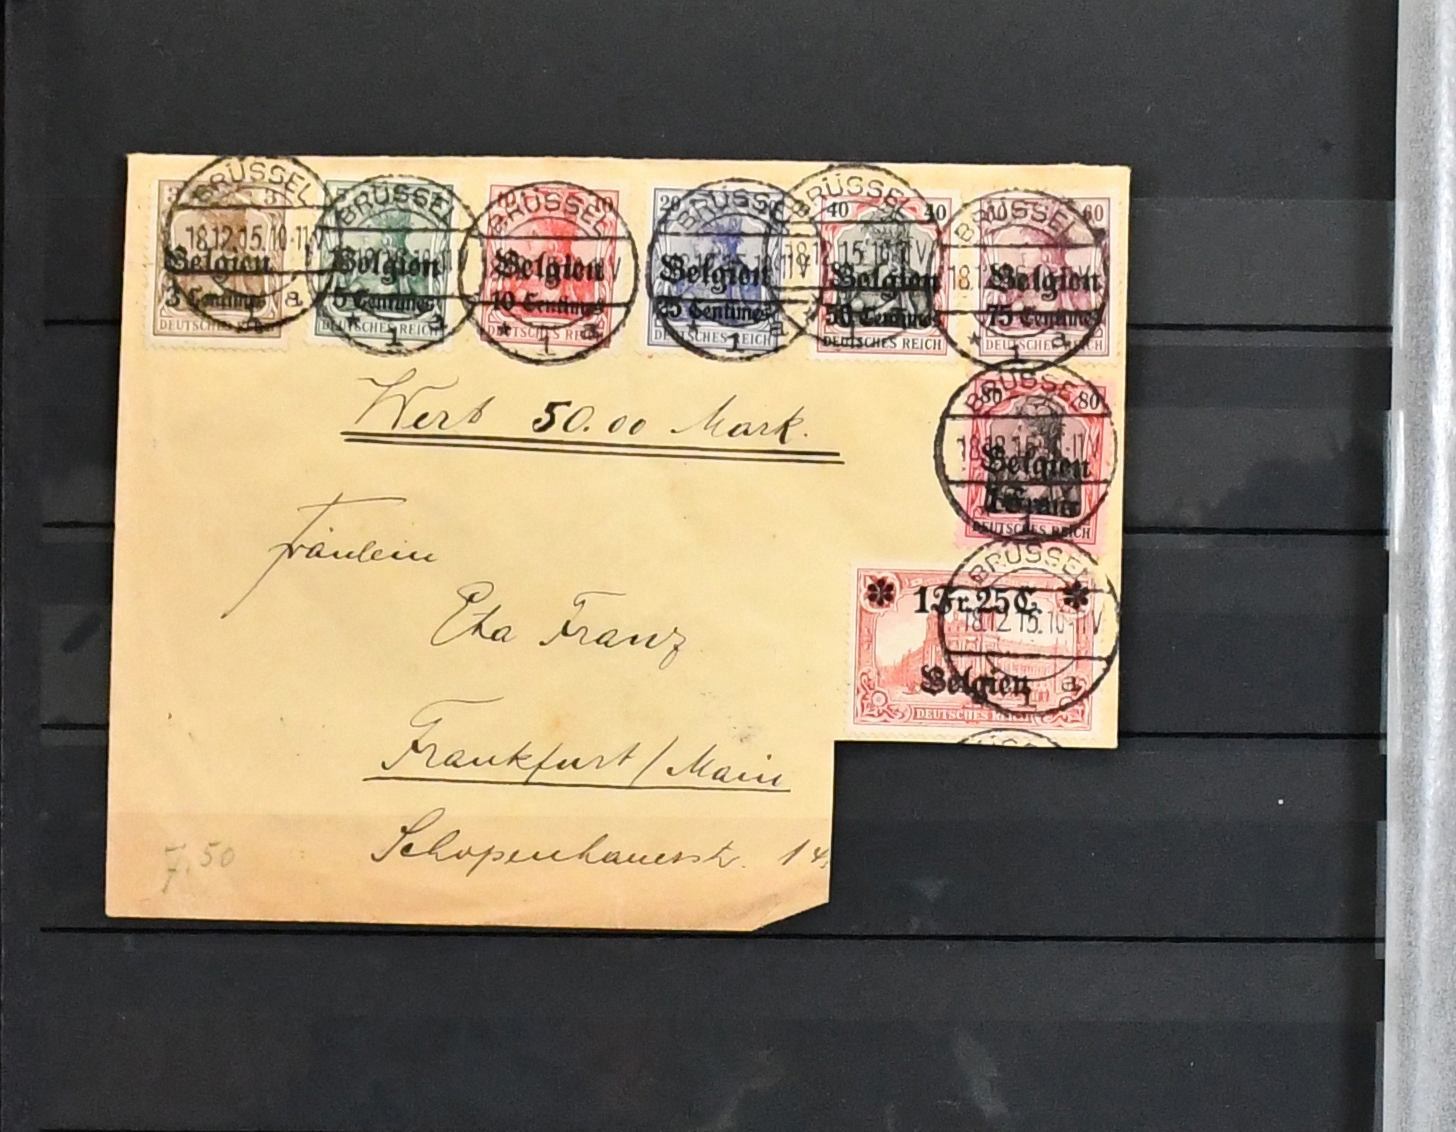 BRÜSSEL BRÜSSEL BRÜSSEL BRÜSSEL BRÜSSEL BRÜSSEL
3 10 20 40 40 60
18.12.15.10-11V 18.12.15.10-11V 18.1
Belgien Belgien Belgien Belgien Belgien Belgien
3 Centimes 5 Centimes 10 Centimes 25 Centimes 50 Centimes 75 Centimes
DEUTSCHES DEUTSCHES REICH DEUTSCHES REICH DEUTSCHES REICH DEUTSCHES REICH DEUTSCHES REICH
a * 1 a * 1 a * 1 a * 1 a
BRÜSSEL
80 80
Wert 50.00 Mark.
18.12.15.10-11V
Belgien
1 Franc
1
DEUTSCHES REICH
Fräulein
BRÜSSEL
1 Fr. 25 C.
18.12.15.10-11V
Eta Franz
Belgien
1 a
DEUTSCHES REICH
Frankfurt / Main
Schopenhauerstr. 14
F. 50